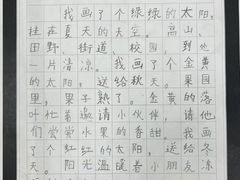 我画了个绿绿的太阳，
挂在夏天的天空。高山、
田野、街道、校园，到处
一片清凉。我画了个金黄
的太阳，送给秋天。果园
里，果子熟了。金黄的落
叶忙着邀请小伙伴，请他
们尝尝水果的香甜。我画
了个红红的太阳，送给冬
天。阳光温暖着小朋友冻